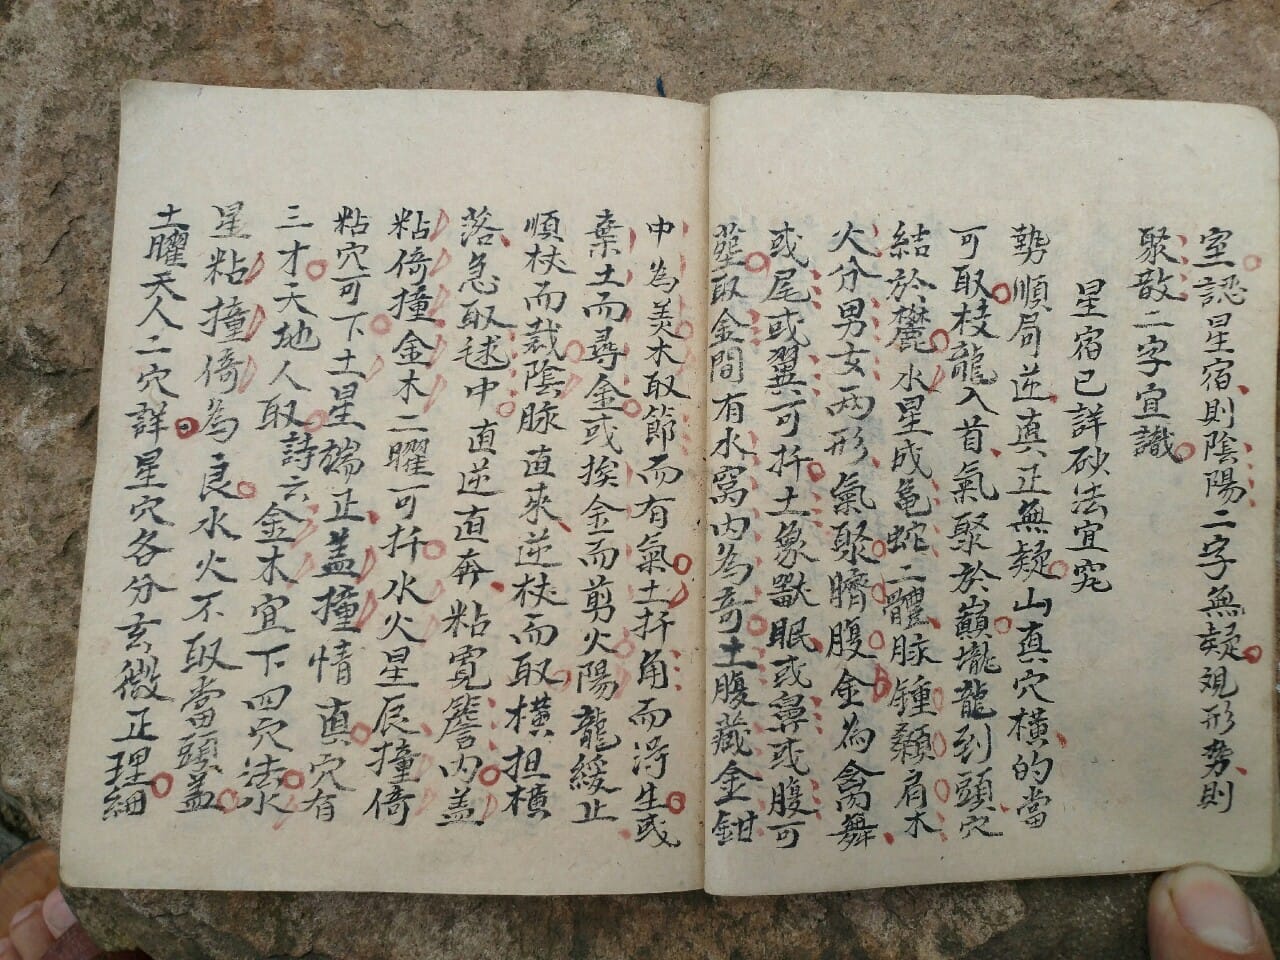 室認星宿則陰陽二字無疑覌形势則
聚散二字宜識
星宿已詳砂法宜究
勢順局逆真正無疑山真穴横的當
可取枝龍入首氣聚於巔壠龍到頭穴
結於麓水星成龟蛇二體脉鍾顙肩木
火分男女两形氣聚臍腹金為禽舞
或尾或翼可扦土象獸眠或鼻或腹可
塟取金間有水窝内為奇土腹藏金鉗
中為美木取節而有氣土扦角而浮生或
棄土而尋金或挨金而剪火陽龍緩止
順杖而裁陰脉直来逆杖而取横担横
落急取毬中直逆直奔粘寛簷内盖
粘倚撞金木二曜可扦水火星辰撞倚
粘穴可下土星端正盖撞情真穴有
三才天地人取詩云金木宜下四穴法水
星粘撞倚為良水火不取當頭盖
土曜天人二穴詳星穴各分玄微正理細